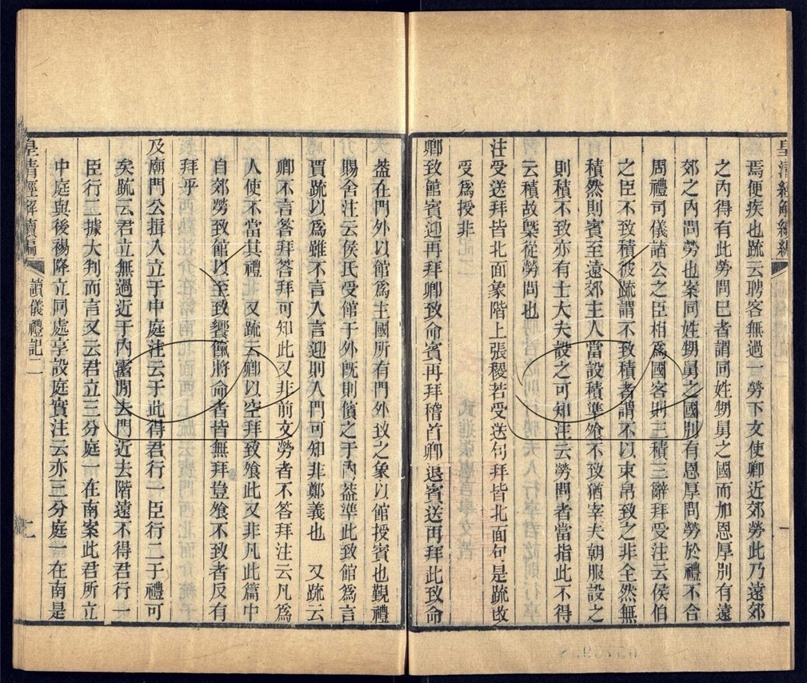 皇清經解續編
焉便疾也疏云聘客無過一勞下文使卿近郊勞此乃遠郊
之內得有此勞問巳者謂同姓甥舅之國而加恩厚別有遠
郊之內問勞也案同姓甥舅之國則有恩厚問勞於禮不合
周禮司儀諸公之臣相爲國客則三積三辭拜受注云侯伯
之臣不致積彼疏謂不致積者謂不以束帛致之非全然無
積然則賓至遠郊主人當設積準飧不致猶宰夫朝服設之
則積不致亦有士大夫設之可知注云勞問者當指此不得
云積故槩從勞問也
注受送拜皆北面象階上張稷若受送句拜皆北面句是疏改
受爲授非
卿致館賓迎再拜卿致命賓再拜稽首卿退賓送再拜此致命
葢在門外以館爲主國所有門外致之象以館授賓也覲禮
賜舍注云侯氏受館于外旣則儐之于內葢準此致館爲言
賈疏以爲雖不言入言迎則入門可知非鄭義也 又疏云
卿不言答拜答拜可知此又非前文勞者不答拜注云凡爲
人使不當其禮 又疏云卿以空拜致飧此又非凡此篇中
自郊勞致館以至致饔餼將命者皆無拜豈飧不致者反有
拜乎
及廟門公揖入立于中庭注云于此得君行一臣行二于禮可
矣疏云君立無過近于內霤閒去門近去階遠不得君行一
臣行二據大判而言又云君立三分庭一在南案此君所立
中庭與後裼降立同處享設庭實注云亦三分庭一在南是
皇清經解續編
讀儀禮記二